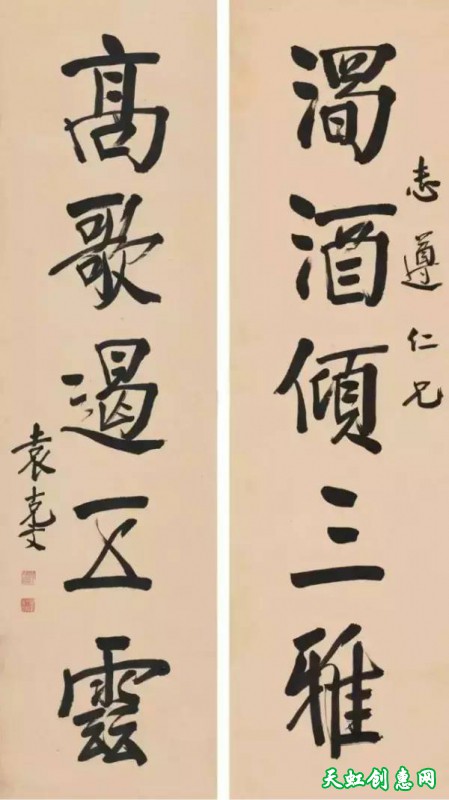 志遵仁兄
酒傾三雅
高歌遏五雲
袁克文
天虹创惠网